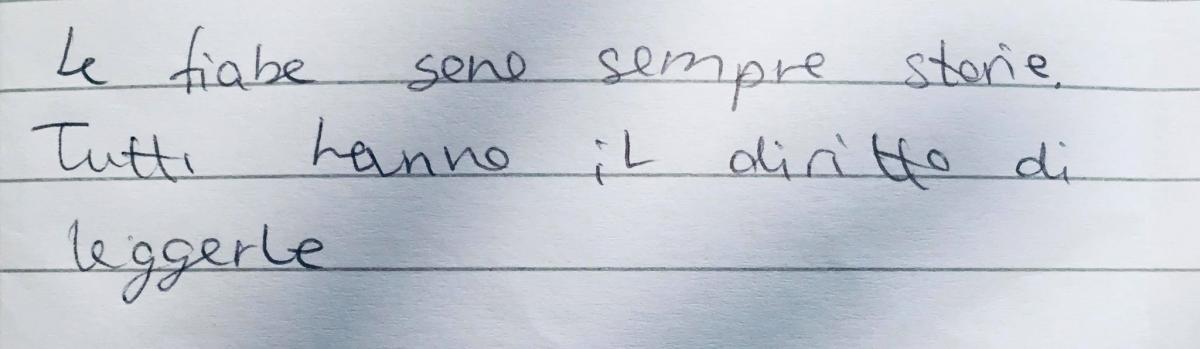 Le fiabe sono sempre storie.
Tutti hanno il diritto di
leggerle